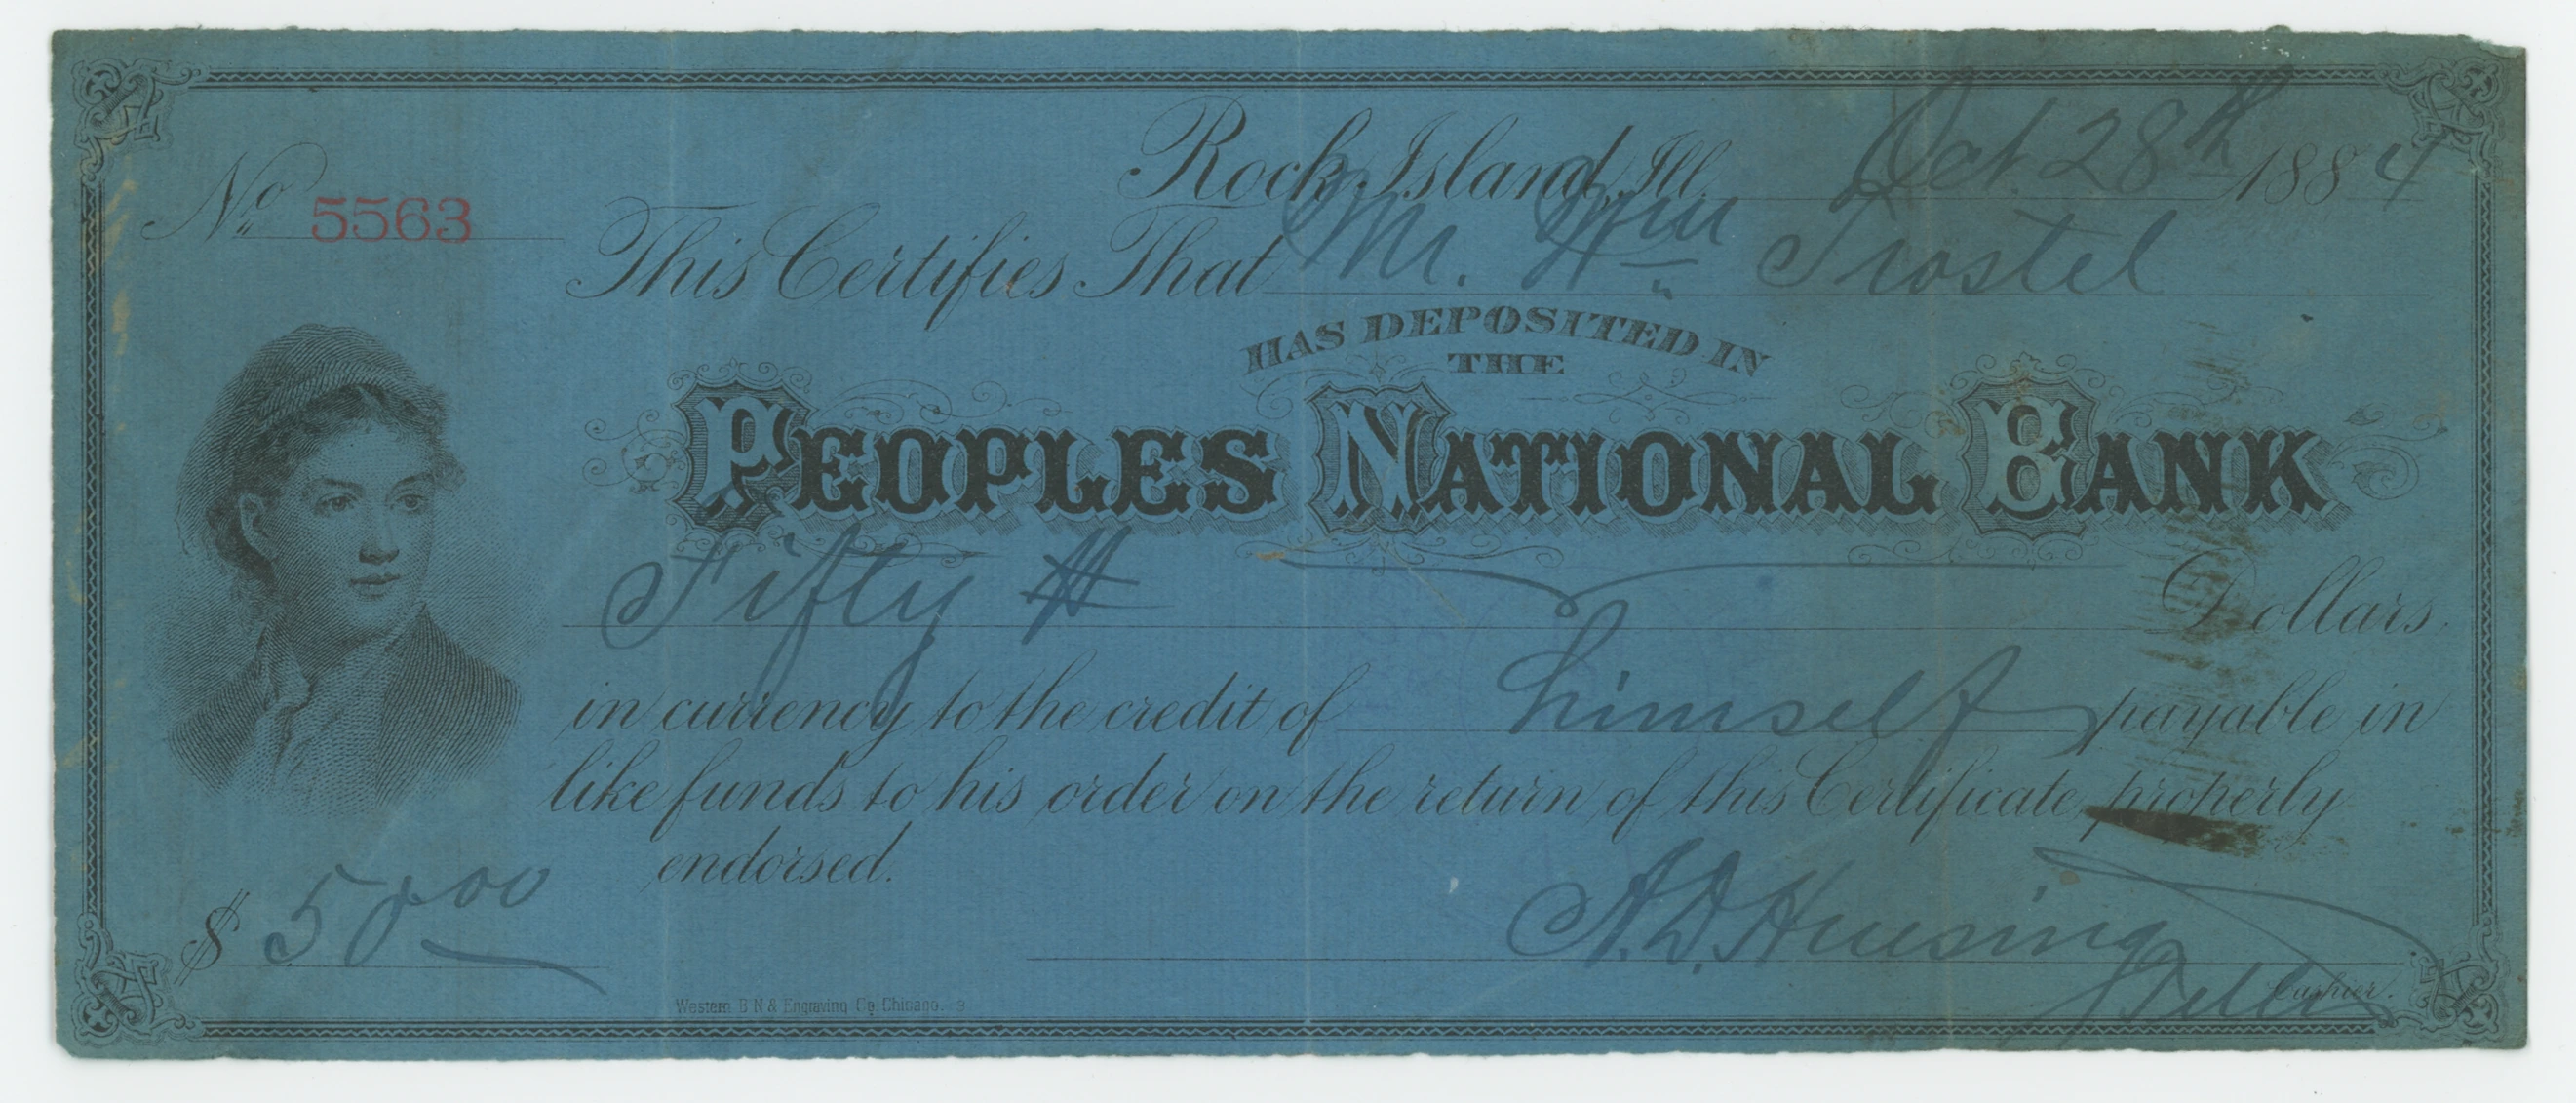 Rock Island, Ill. Oct. 28th 1884
No. 5563
This Certifies That Mr. Wm Trostel
HAS DEPOSITED IN
THE
PEOPLES NATIONAL BANK
Fifty # Dollars.
in currency to the credit of himself payable in
like funds to his order on the return of this Certificate properly
endorsed.
$ 50 00 A.D. Huesing
Teller Cashier.
Western B N & Engraving Co. Chicago. 3